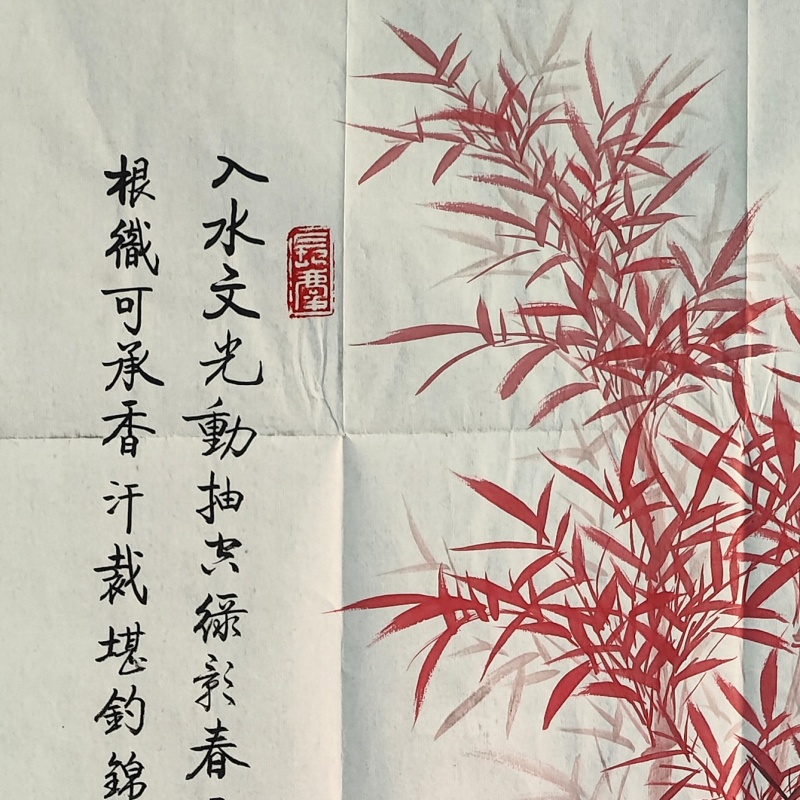 入水文光動抽空綠影春
根織可承香汗裁堪釣錦